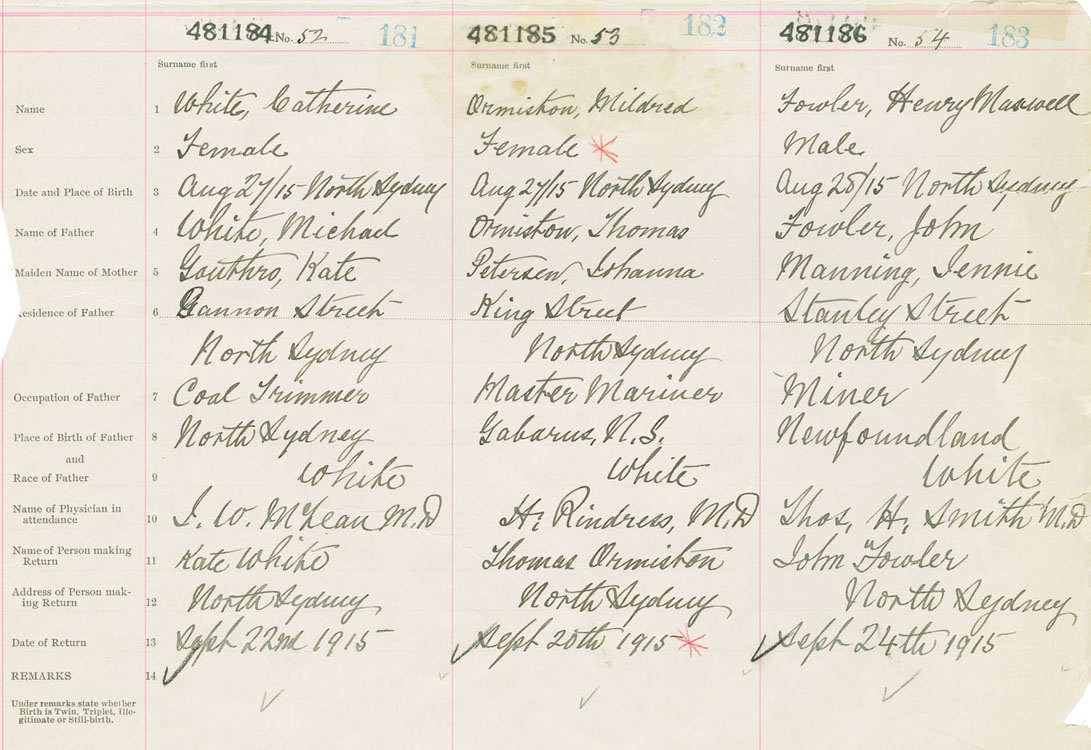 481184 No. 52 181 481185 No. 53 182 481186 No. 54 183
Surname first Surname first Surname first
Name 1 White, Catherine Ormiston, Mildred Fowler, Henry Maxwell
Sex 2 Female Female Male
Date and Place of Birth 3 Aug 27/15 North Sydney Aug 27/15 North Sydney Aug 28/15 North Sydney
Name of Father 4 White, Michael Ormiston, Thomas Fowler, John
Maiden Name of Mother 5 Gouthro, Kate Petersen, Johanna Manning, Jennie
Residence of Father 6 Gannon Street King Street Stanley Street
North Sydney North Sydney North Sydney
Occupation of Father 7 Coal Trimmer Master Mariner Miner
Place of Birth of Father 8 North Sydney Gabarus, N.S. Newfoundland
and
Race of Father 9 White White White
Name of Physician in
attendance 10 J. W. McLean M.D H. Rindress, M.D Thos. H. Smith M.D
Name of Person making
Return 11 Kate White Thomas Ormiston John Fowler
Address of Person mak-
ing Return 12 North Sydney North Sydney North Sydney
Date of Return 13 Sept 22nd 1915 Sept 20th 1915 Sept 24th 1915
REMARKS 14
Under remarks state whether
Birth is Twin, Triplet, Ille-
gitimate or Still-birth.